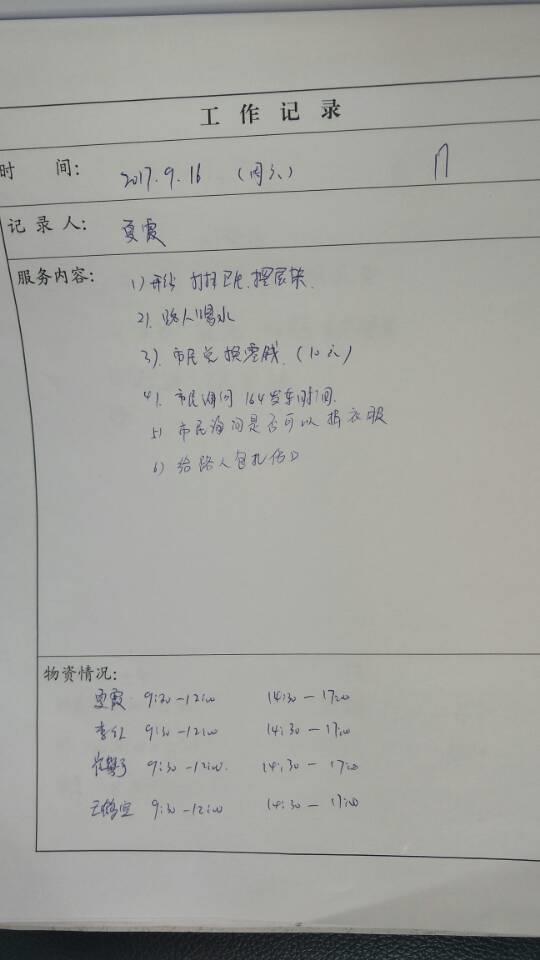 工作记录
时 间: 2017.9.16 (周六)
记录人: 夏霞
服务内容: 1) 开站 打扫卫生.摆展架.
2). 路人喝水
3). 市民兑换零钱.(10元)
4). 市民询问 164发车时间.
5) 市民询问是否可以捐衣服
6) 给路人包扎伤口
物资情况:
夏霞 9:30-12:00 14:30-17:00
李 9:30-12:00 14:30-17:00
9:30-12:00. 14:30-17:00
王 9:30-12:00 14:30-17:00